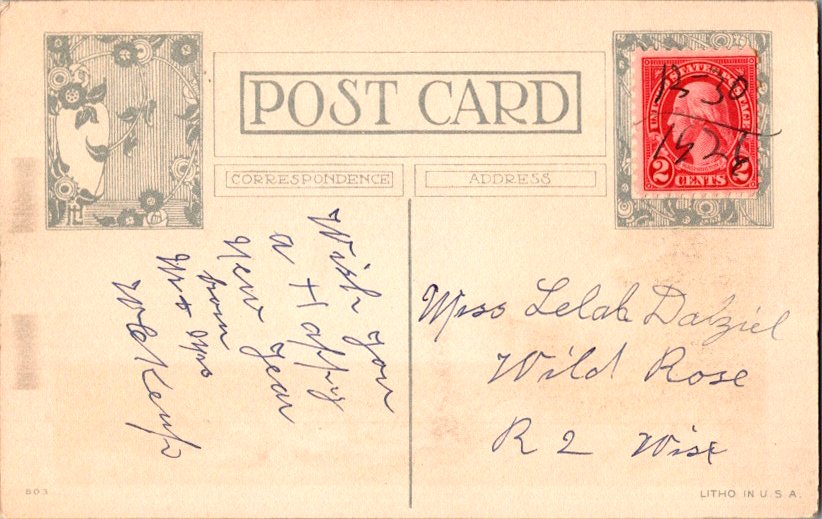 POST CARD
CORRESPONDENCE
ADDRESS
UNITED STATES POSTAGE
2 CENTS 2
12-30
1926
Wish you
a Happy
New Year
from
Mr & Mrs
Miss Lelah Dalziel
Wild Rose
R 2 Wisc
803
LITHO IN U.S.A.